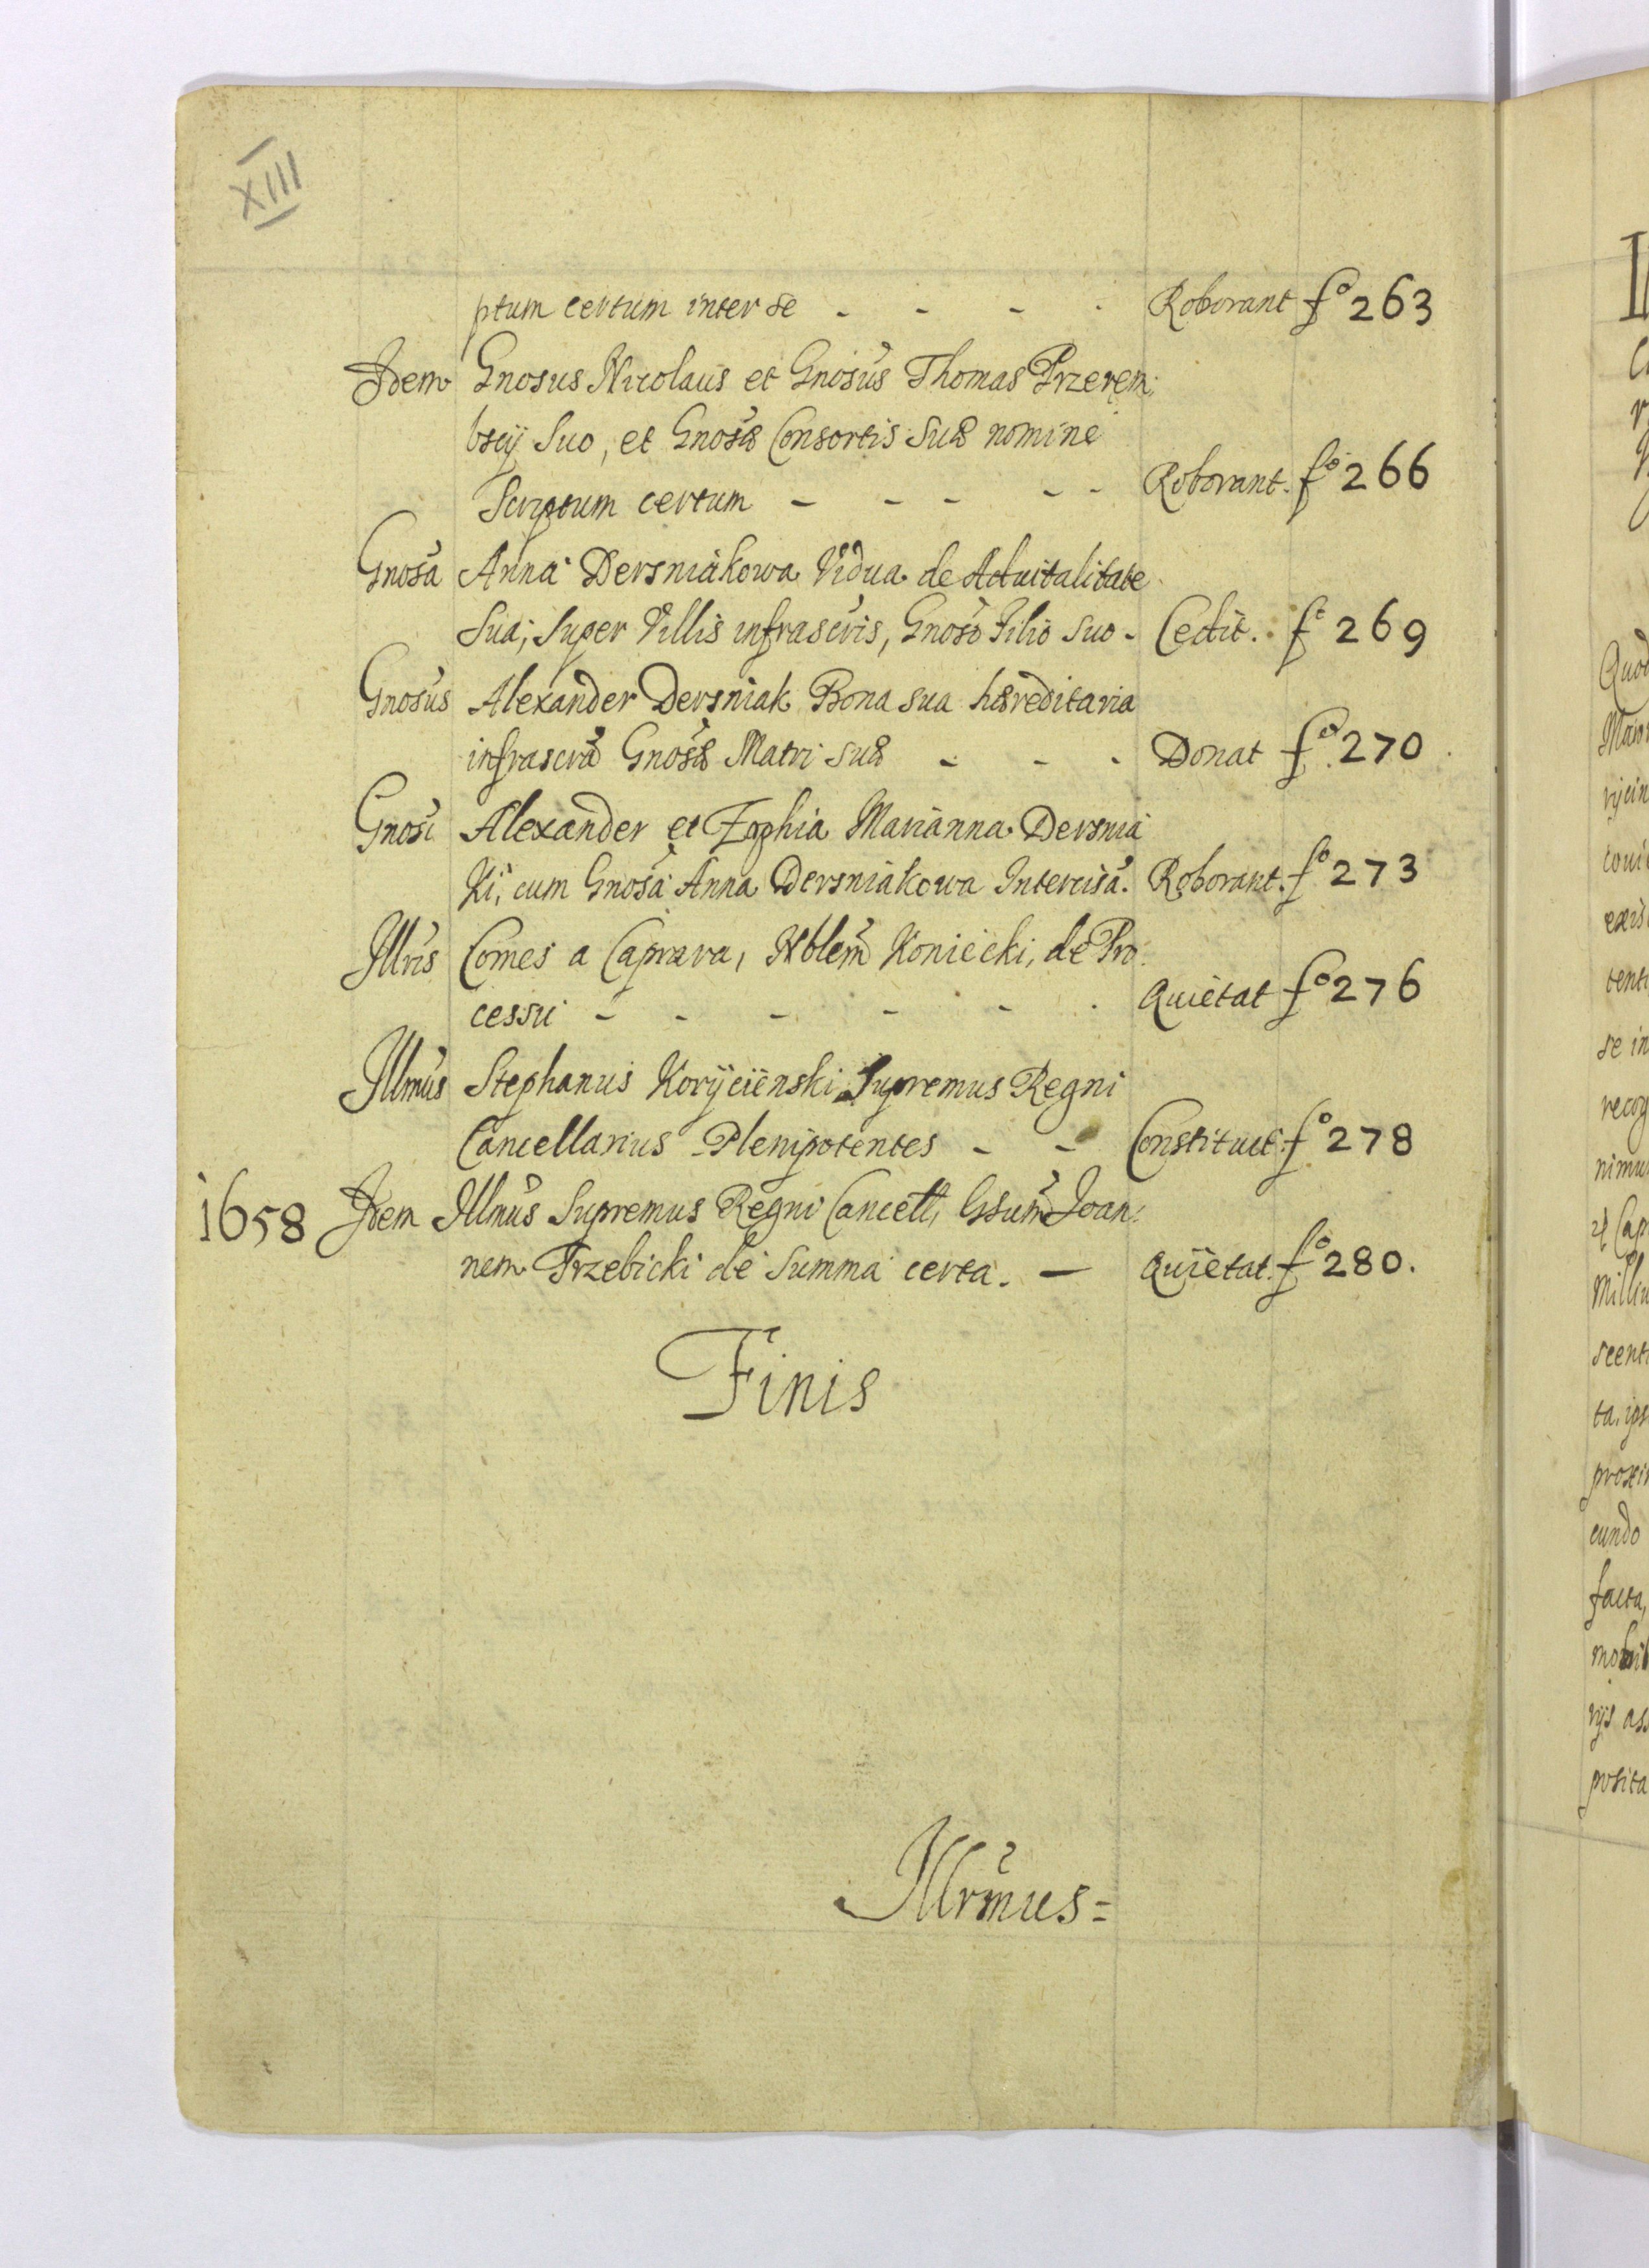 XIII
ptum certum inter se - - - - Roborant fo 263
Idem Gnosus Nicolaus et Gnosus Thomas Przerem:
bscÿ Suo, et Gnosæ Consortis Suæ nomine
Scriptum certum - - - - - Roborant. fo 266
Gnosa Anna Dersniakowa Vidua de Advitalitate
Sua, Super Villis infrascris, Gnoso Filio Suo - Cedit. fo 269
Gnosus Alexander Dersniak Bona sua hæreditaria
infrascra Gnosæ Matri suæ - - - Donat fo 270
Gnosi Alexander et Zophia Marianna Dersnia
Ki, cum Gnosa Anna Dersniakowa Intercisa. Roborant. fo 273
Illris Comes a Caprara, Nblem Koniecki, de Pro
cessu - - - - - - Quietat fo 276
Illmus Stephanus Korÿcienski Supremus Regni
Cancellarius Plenipotentes - - Constituit fo 278
1658 Idem Illmus Supremus Regni Cancell, Gsum Joan:
nem Trzebicki de Summa certa. - Quietat. fo 280.
Finis
Illrmus=